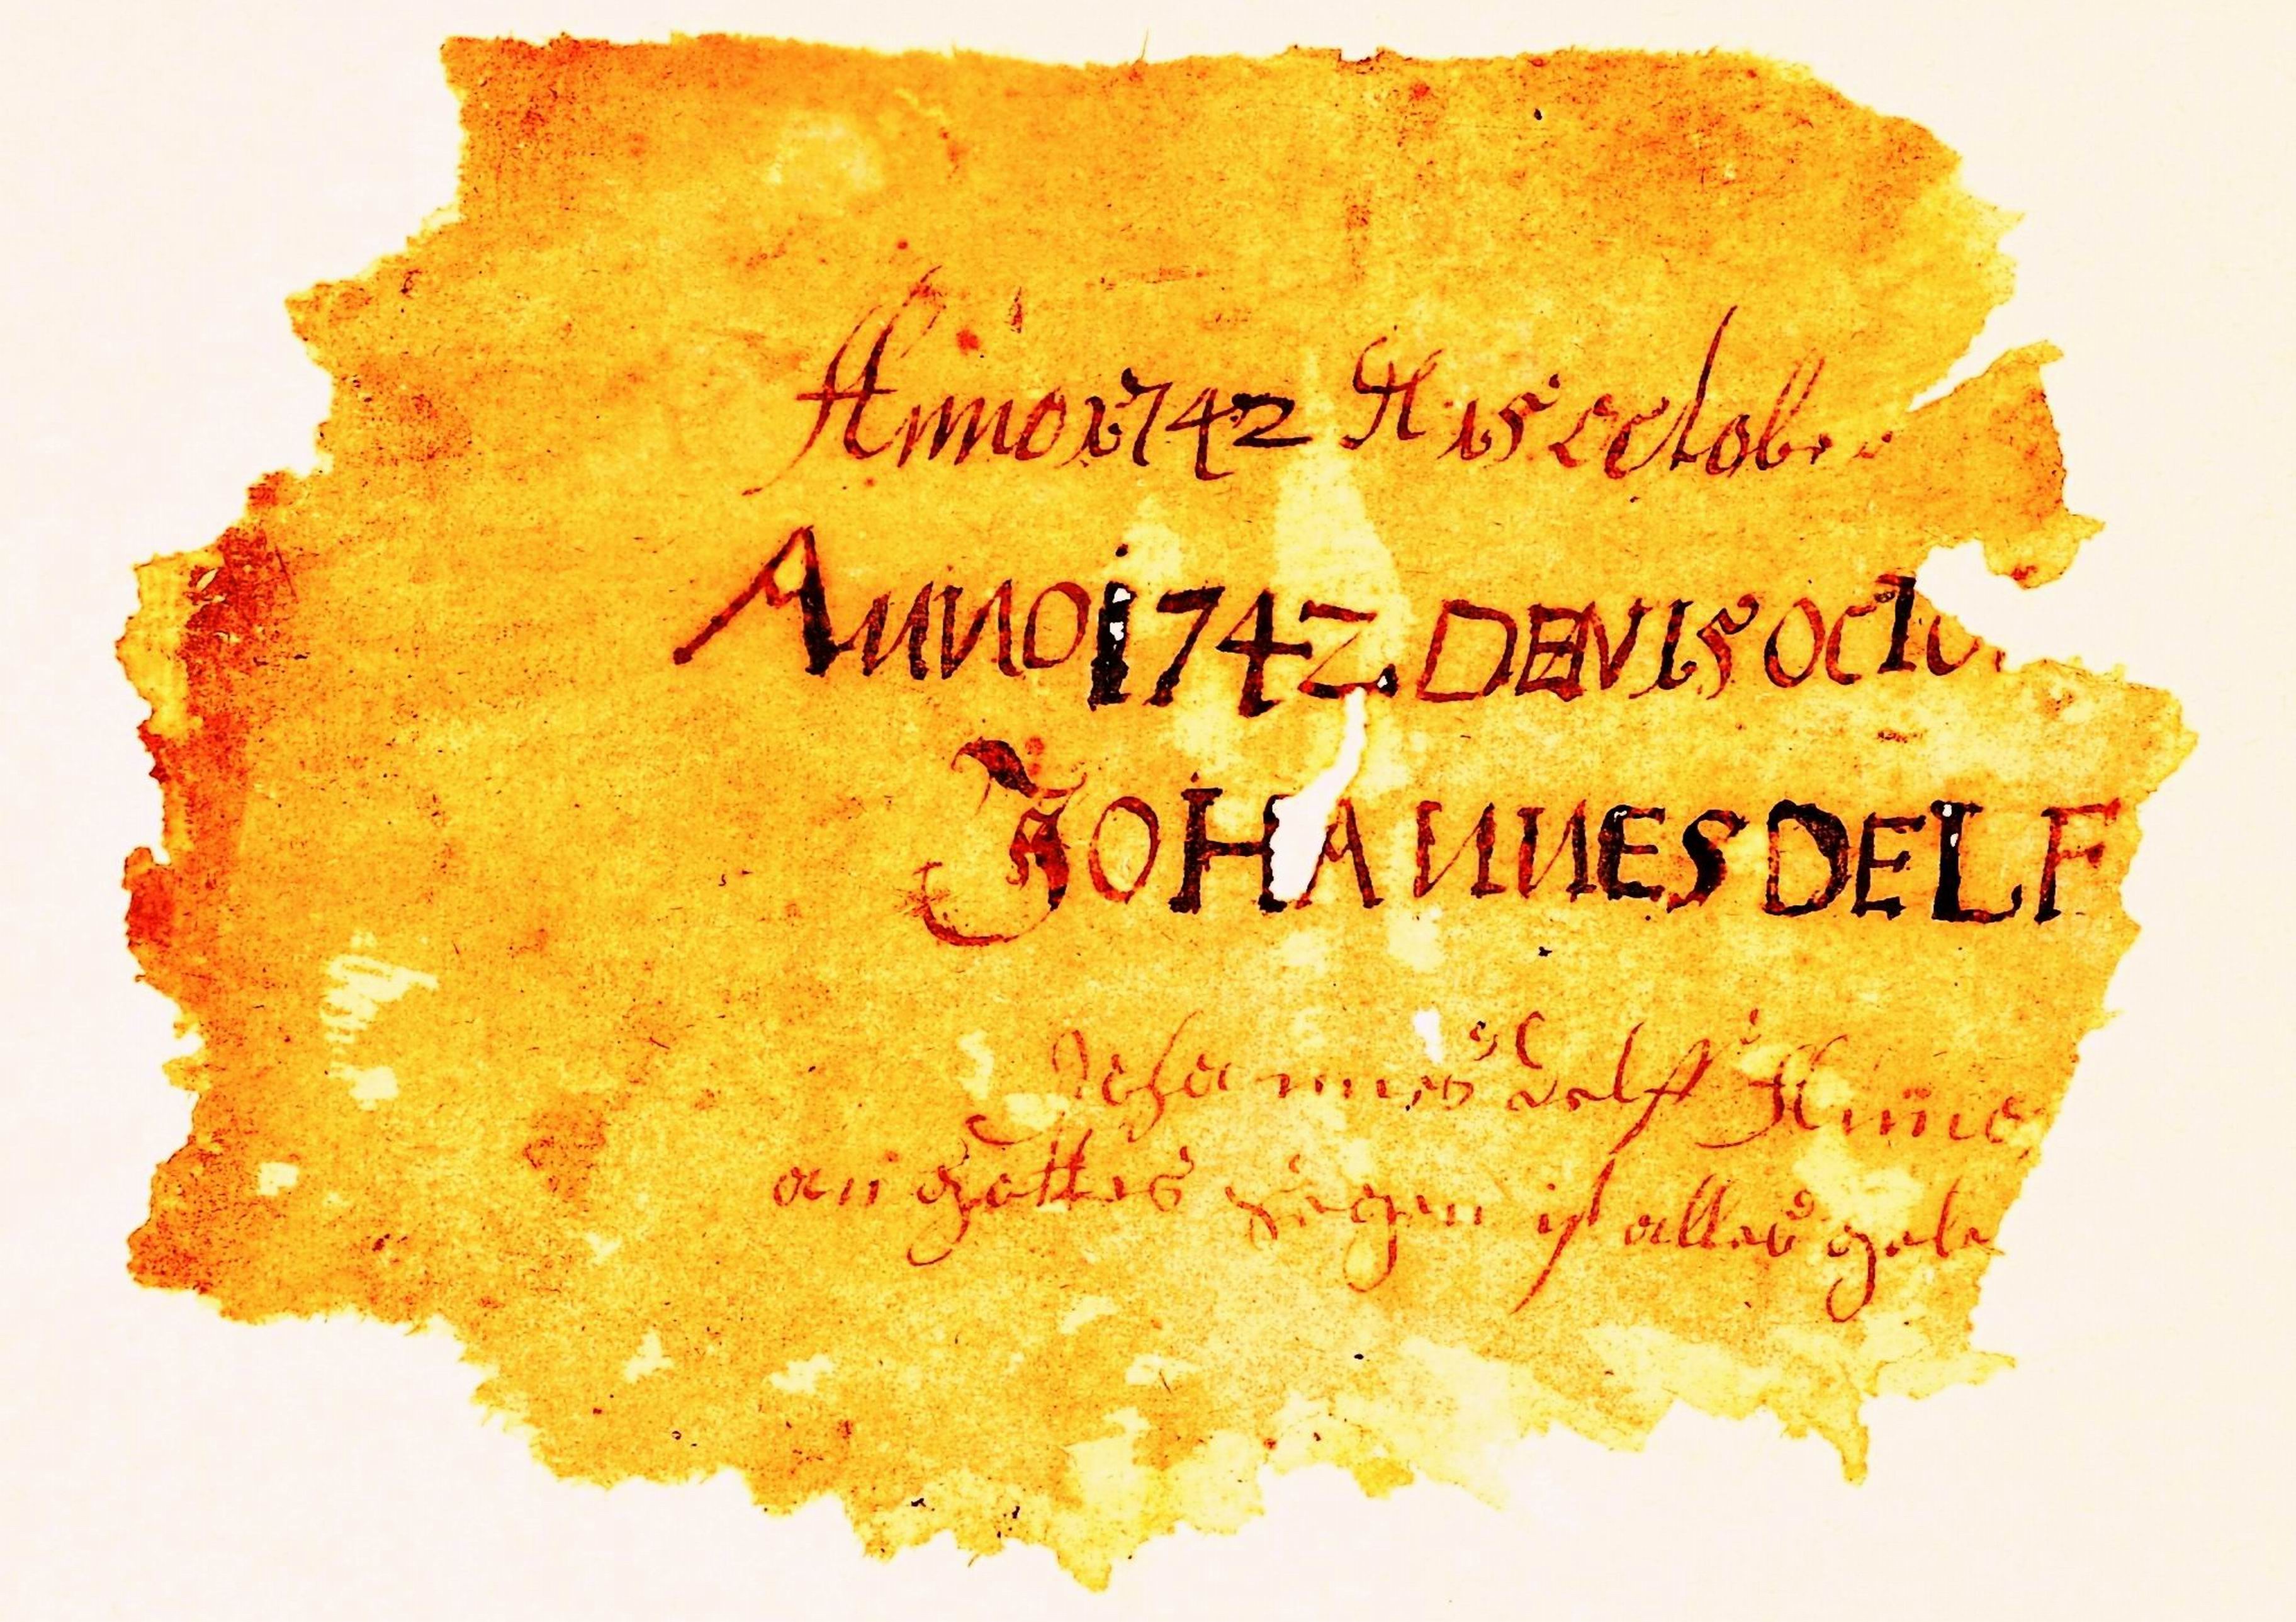 Anno 1742 d 15 octobe
Anno 1742. DEN 15 Octo
JOHANNES DELF
Johannes Delff Anno
an Gottes segen ist alles gele